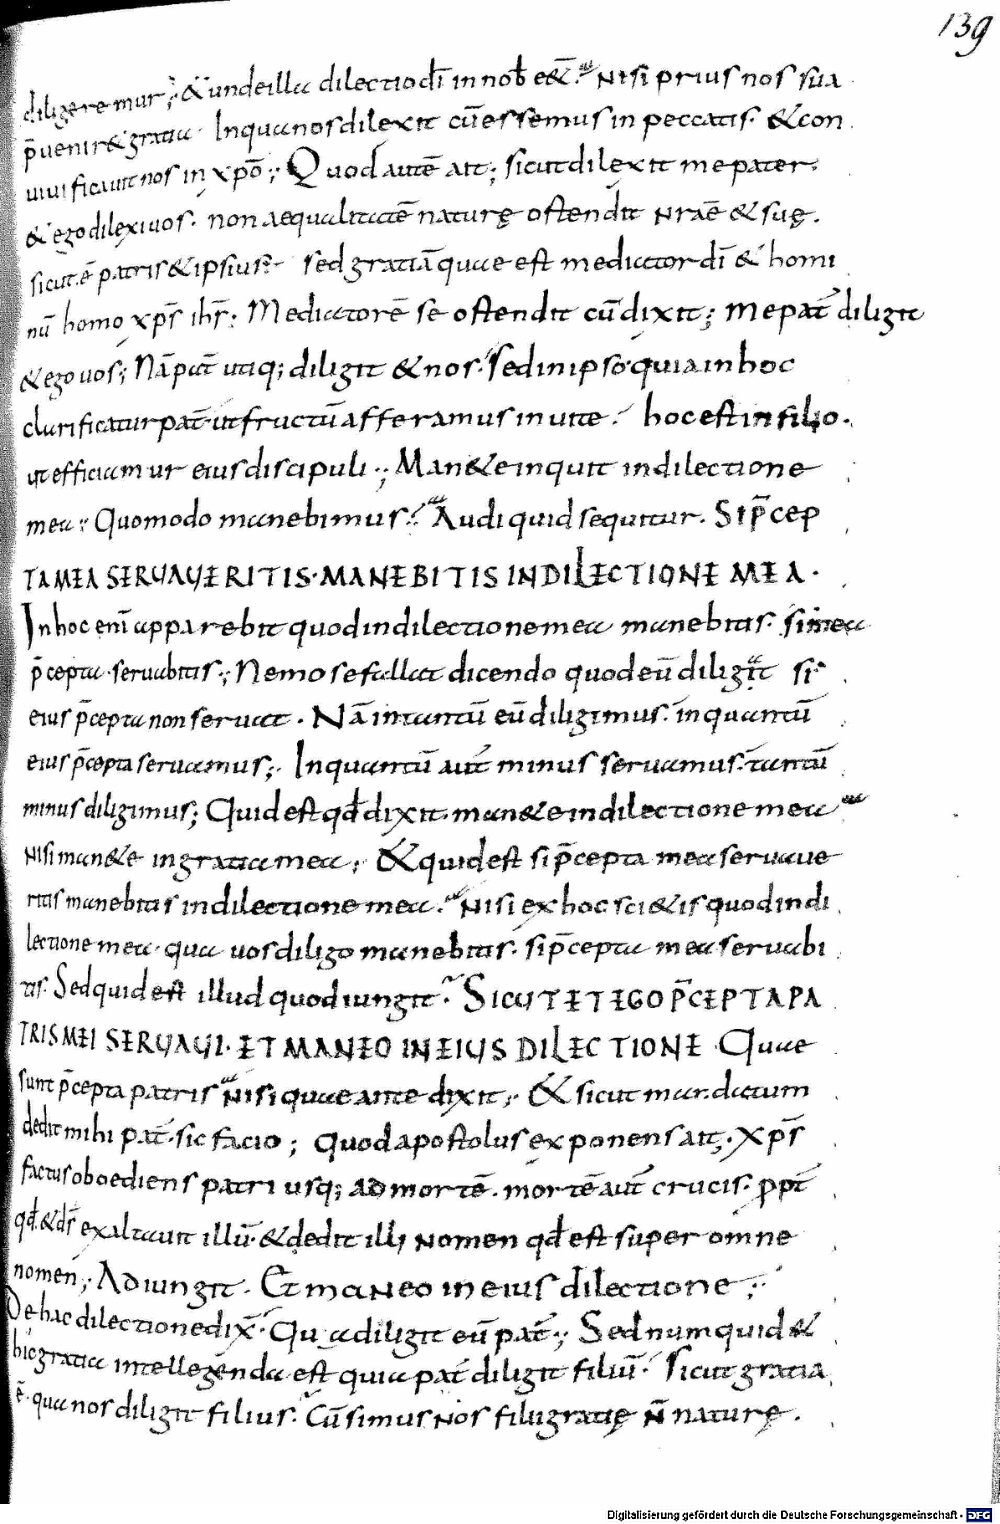 139
diligeremur; & unde illa dilectio dī in nob̄ e&̄. Nisi prius nos sua
p̄uenir& gratia. In qua nos dilexit cū essemus in peccatis. & con
uiuificauit nos in xp̄o; Quod autē ait; sicut dilexit me pater.
& ego dilexi uos. non aequalitatē naturę ostendit nr̄aē & suę.
sicut ē patris & ipsius. sed gratiā qua est mediator dī & homi
nū homo xp̄s ih̄s; Mediatorē se ostendit cū dixit; me pat̄ diligit
& ego uos; Nā pat̄ utiq; diligit & nos. sed in ipso. quia in hoc
clarificatur pat̄. ut fructū afferamus in uite. hoc est in filio.
ut efficiamur eius discipuli; Man&e inquit in dilectione
mea; Quomodo manebimus. Audi quid sequitur. SI p̄CEP
TA MEA SERUAUERITIS. MANEBITIS IN DILECTIONE MEA.
In hoc enī apparebit quod in dilectione mea manebitis. si mea
p̄cepta. seruabitis; Nemo se fallat dicendo quod eū diligit si
eius p̄cepta non seruat. Nā in tantū eū diligimus. in quantū
eius p̄cepta seruamus; In quantū aut̄ minus seruamus. tantū
minus diligimus; Quid est qd̄ dixit. man&e in dilectione mea
Nisi man&e in gratia mea; & quid est si p̄cepta mea seruaue
ritis manebitis in dilectione mea. Nisi ex hoc sci&is quod in di
lectione mea. qua uos diligo manebitis. si p̄cepta mea seruabi
tis. Sed quid est illud quod iungit. SICUT ET EGO p̄CEPTA PA
TRIS MEI SERUAUI. ET MANEO IN EIUS DILECTIONE. Quae
sunt p̄cepta patris Nisi quae ante dixit; & sicut mandatum
dedit mihi pat̄. sic facio; Quod apostolus exponens ait; Xp̄s
factus oboediens patri usq; ad mortē. mortē aut̄ crucis. ppt̄
qd̄. & ds̄ exaltauit illū. & dedit illi Nomen qd̄ est super omne
nomen; Adiungit. Et maneo in eius dilectione;
De hac dilectione dix̄. Qua diligit eū pat̄; Sed numquid &
hic gratia intellegenda est qua pat̄ diligit filiū. Sicut gratia
ē. qua nos diligit filius. Cū simus Nos filii gratię N̄ naturę.
Digitalisierung gefördert durch die Deutsche Forschungsgemeinschaft - DFG